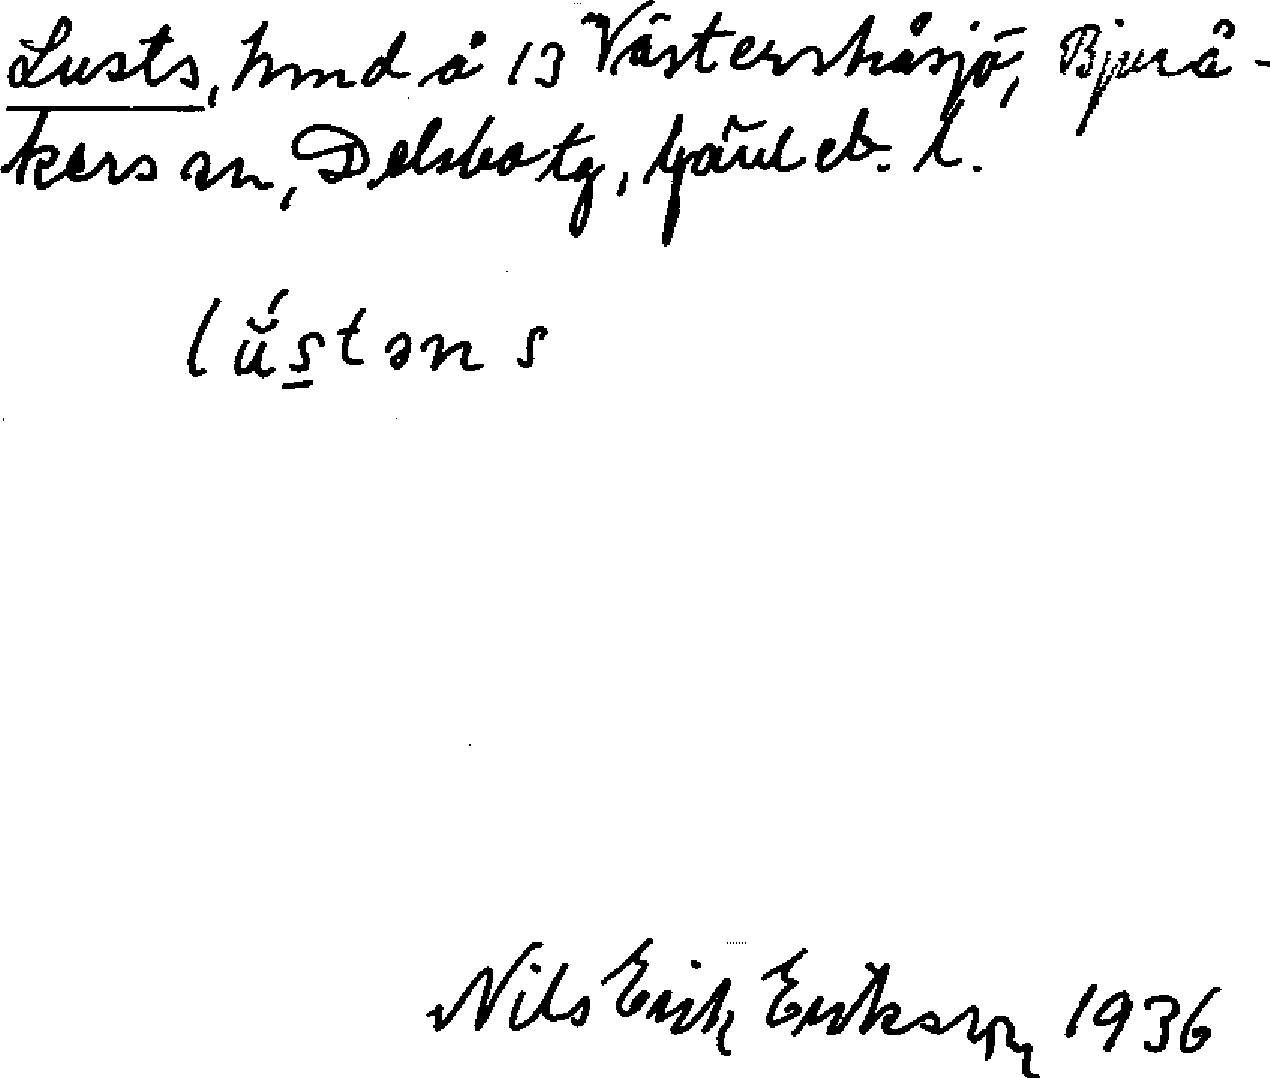 Lusts, hmd å 13 Västerskåsjö, Bjurå-
kers sn, Delsbo tg, Gävleb. l.
lŭ́s̱təns
Nils Erik Eriksson 1936